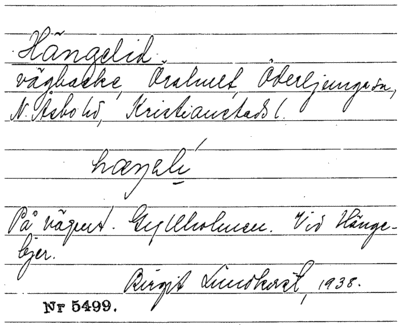 Hängelid
vägbacke, Örahult, Öderljunga sn,
N. Åsbo hd, Kristianstads l.
hæŋəlí
På vägen t. Gyllholmen. Vid Hänge-
bjer.
Birgit Lundkvist, 1938.
Nr 5499.